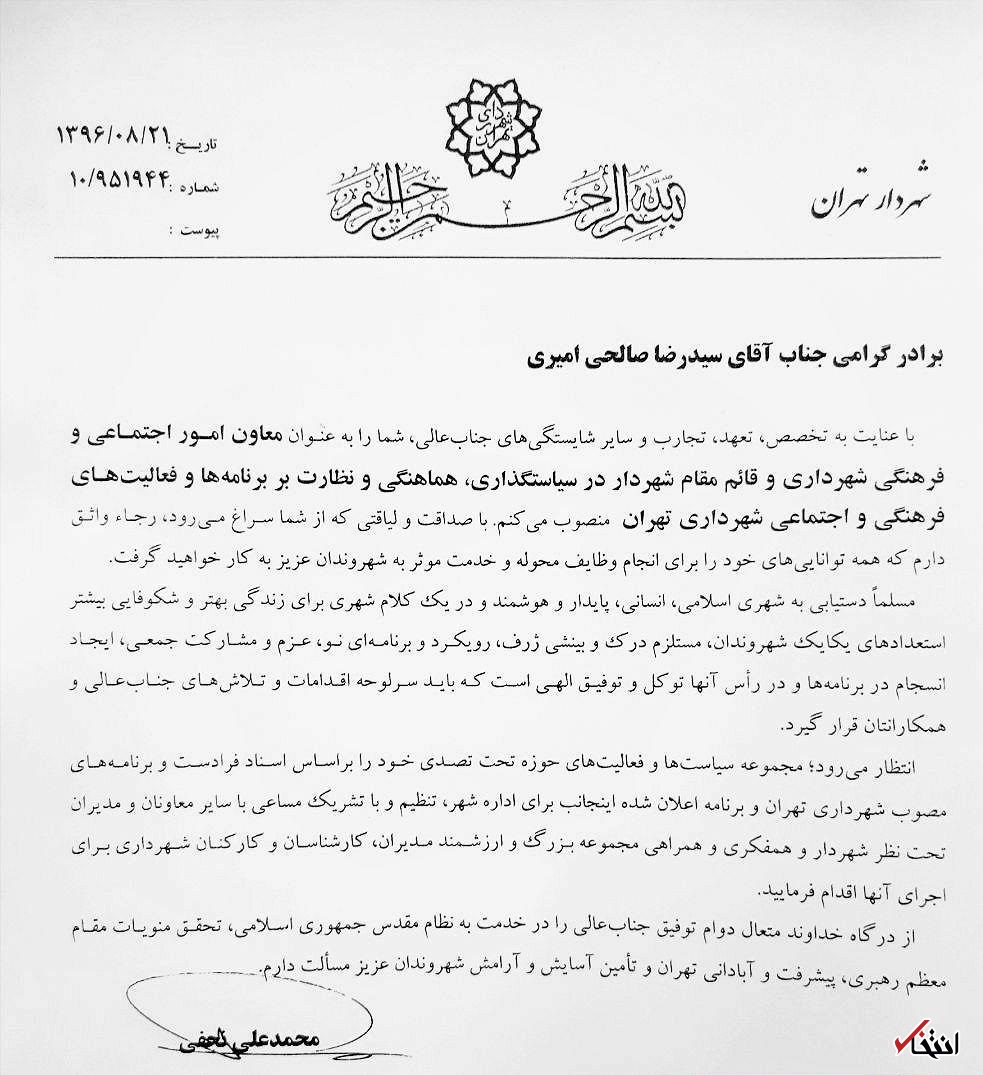 شهرداری تهران
بسم الله الرحمن الرحیم
شهردار تهران
تاریخ: ۱۳۹۶/۰۸/۲۱
شماره: ۱۰/۹۵۱۹۴۴
پیوست :
برادر گرامی جناب آقای سیدرضا صالحی امیری
با عنایت به تخصص، تعهد، تجارب و سایر شایستگی‌های جناب‌عالی، شما را به عنوان معاون امور اجتماعی و
فرهنگی شهرداری و قائم مقام شهردار در سیاستگذاری، هماهنگی و نظارت بر برنامه‌ها و فعالیت‌های
فرهنگی و اجتماعی شهرداری تهران منصوب می‌کنم. با صداقت و لیاقتی که از شما سراغ می‌رود، رجاء واثق
دارم که همه توانایی‌های خود را برای انجام وظایف محوله و خدمت موثر به شهروندان عزیز به کار خواهید گرفت.
مسلماً دستیابی به شهری اسلامی، انسانی، پایدار و هوشمند و در یک کلام شهری برای زندگی بهتر و شکوفایی بیشتر
استعدادهای یکایک شهروندان، مستلزم درک و بینشی ژرف، رویکرد و برنامه‌ای نو، عزم و مشارکت جمعی، ایجاد
انسجام در برنامه‌ها و در رأس آنها توکل و توفیق الهی است که باید سرلوحه اقدامات و تلاش‌های جناب‌عالی و
همکارانتان قرار گیرد.
انتظار می‌رود؛ مجموعه سیاست‌ها و فعالیت‌های حوزه تحت تصدی خود را براساس اسناد فرادست و برنامه‌های
مصوب شهرداری تهران و برنامه اعلان شده اینجانب برای اداره شهر، تنظیم و با تشریک مساعی با سایر معاونان و مدیران
تحت نظر شهردار و همفکری و همراهی مجموعه بزرگ و ارزشمند مدیران، کارشناسان و کارکنان شهرداری برای
اجرای آنها اقدام فرمایید.
از درگاه خداوند متعال دوام توفیق جناب‌عالی را در خدمت به نظام مقدس جمهوری اسلامی، تحقق منویات مقام
معظم رهبری، پیشرفت و آبادانی تهران و تأمین آسایش و آرامش شهروندان عزیز مسألت دارم.
محمدعلی نجفی
انتخاب